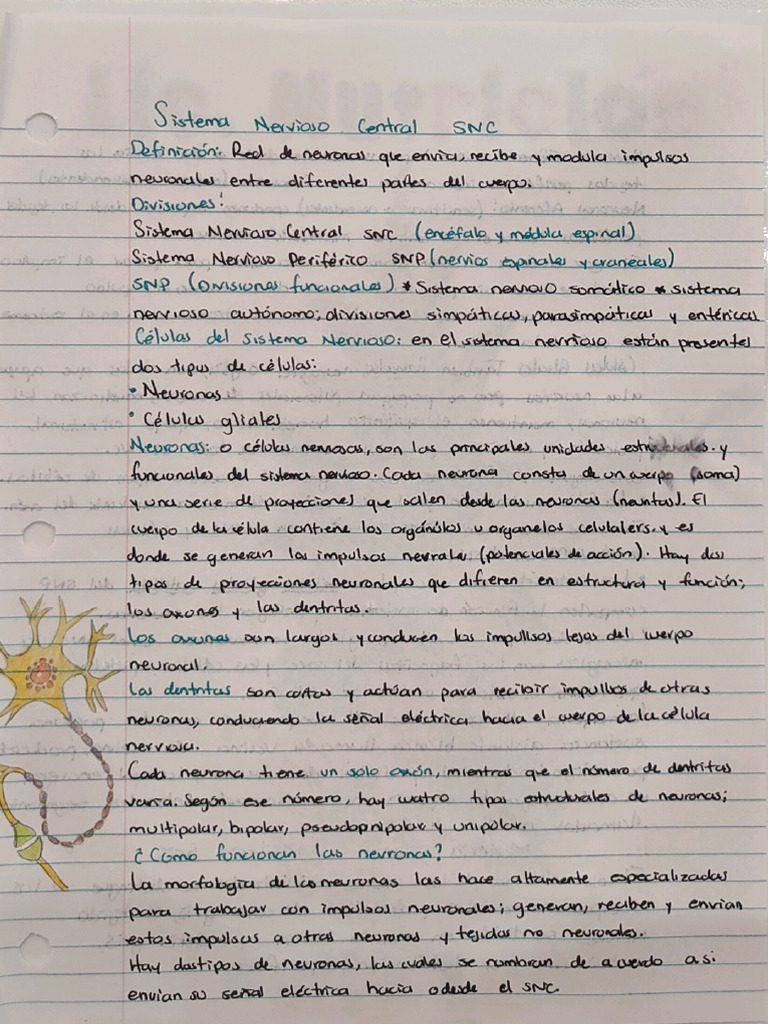 Sistema Nervioso Central SNC
Definición: Red de neuronas que envia, recibe y modula impulsos
neuronales entre diferentes partes del cuerpo.
Divisiones:
Sistema Nervioso Central SNC (encéfalo y médula espinal)
Sistema Nervioso Periférico SNP (nervios espinales y craneales)
SNP (Divisiones funcionales) * Sistema nervioso somático * sistema
nervioso autónomo; divisiones simpáticas, parasimpáticas y entéricas
Células del Sistema Nervioso: en el sistema nervioso están presentes
dos tipos de células:
• Neuronas
• Células gliales
Neuronas: o células nerviosas, son las principales unidades estructurales y
funcionales del sistema nervioso. Cada neurona consta de un cuerpo (soma)
y una serie de proyecciones que salen desde las neuronas (neuritas). El
cuerpo de la célula contiene los orgánulos u organelos celulalers, y es
donde se generan los impulsos nevrales (potenciales de acción). Hay dos
tipos de proyecciones neuronales que difieren en estructura y función;
los axones y las dentritas.
Los axones son largos y conducen los impullsos lejos del cuerpo
neuronal.
Las dentritas son cortas y actúan para recibir impulsos de otras
neuronas, conduciendo la señal eléctrica hacia el cuerpo de la célula
nerviosa.
Cada neurona tiene un solo axón, mientras que el número de dentritas
varia. Según ese número, hay cuatro tipos estructurales de neuronas;
multipolar, bipolar, pseudopnipolar y unipolar.
¿Como funcionan las nevronas?
La morfologia de las neuronas las hace altamente especializadas
para trabajar con impulsos neuronales; generan, reciben y envian
estos impulsos a otras neuronas y tejidos no neuronales.
Hay dos tipos de neuronas, las cuales se nombran de acuerdo a si
envian su señal eléctrica hacia o desde el SNC.